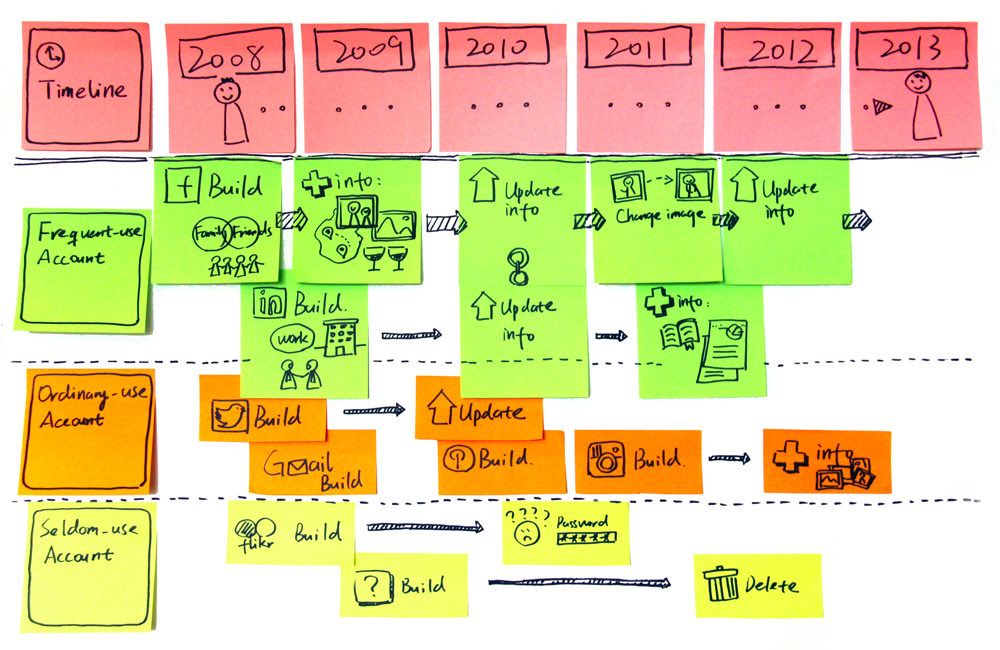 Timeline
2008
2009
2010
2011
2012
2013
Frequent-use
Account
f Build
Family Friends
+ info:
Update
info
Change image
Update
info
in Build.
work
Update
info
+ info:
Ordinary-use
Account
Build
Update
Gmail
Build
P Build.
Build.
+ info
Seldom-use
Account
flikr Build
????
Password
? Build
Delete